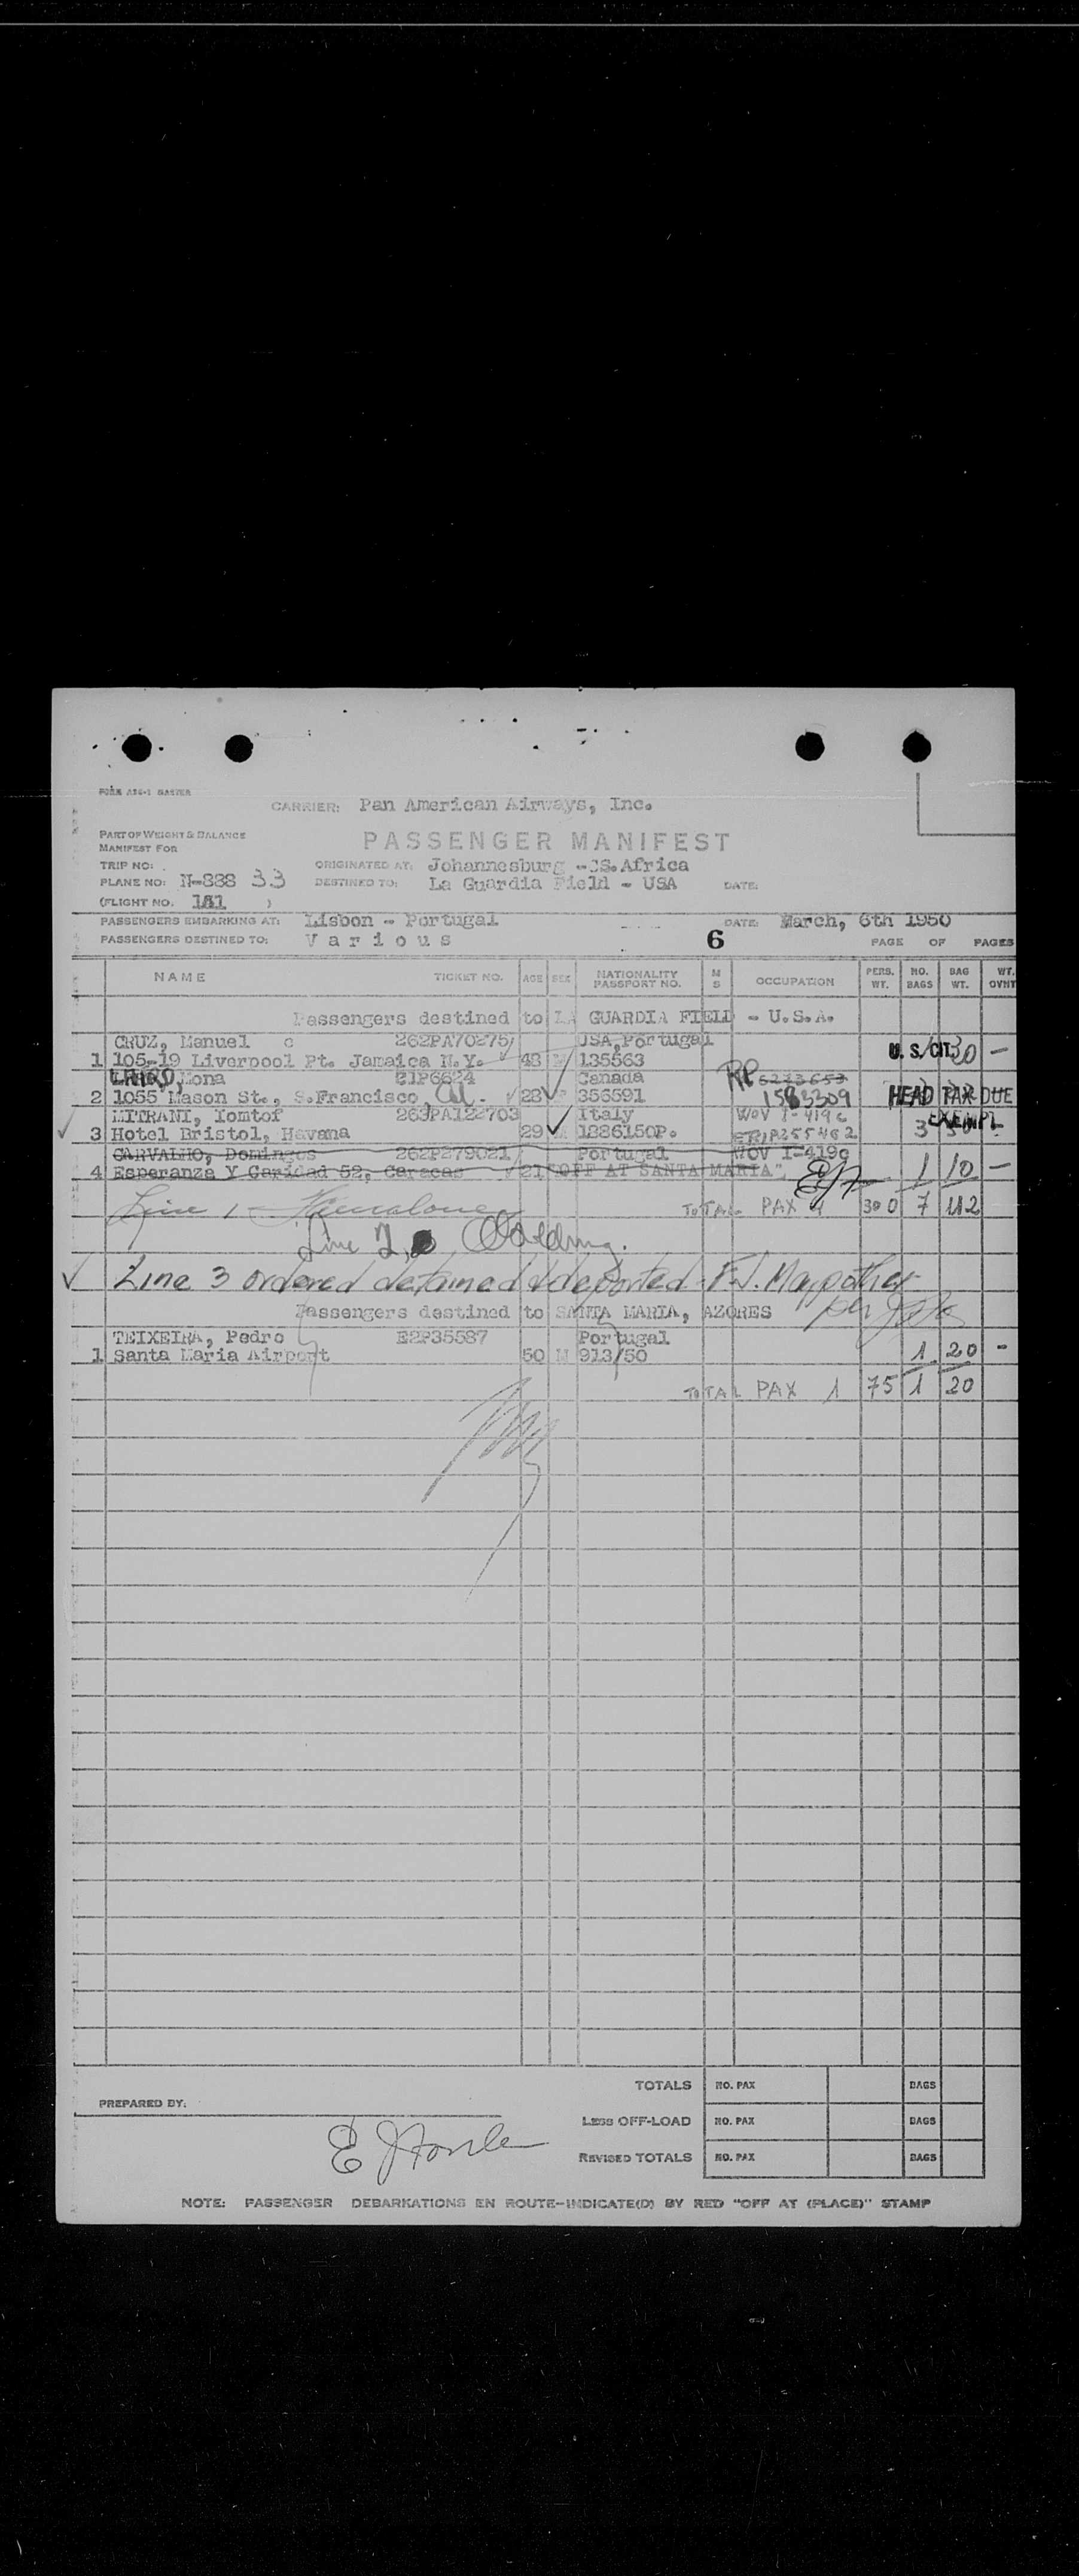 FORM ASG-1 MASTER
CARRIER: Pan American Airways, Inc.
PART OF WEIGHT & BALANCE
MANIFEST FOR
PASSENGER MANIFEST
TRIP NO: ORIGINATED AT: Johannesburg - S.Africa
PLANE NO: N-888 33 DESTINED TO: La Guardia Field - USA DATE:
(FLIGHT NO. 151 )
PASSENGERS EMBARKING AT: Lisbon - Portugal DATE: March, 6th 1950
PASSENGERS DESTINED TO: Various 6 PAGE OF PAGES
NAME TICKET NO. AGE SEX NATIONALITY PASSPORT NO. M S OCCUPATION PERS. WT. NO. BAGS BAG WT. WT. OVHT
Passengers destined to LA GUARDIA FIELD - U.S.A.
CRUZ, Manuel c 262PA70275 USA, Portugal
1 105-19 Liverpool Pt. Jamaica N.Y. 48 M 135563 U.S. CIT. 30 -
Mona E1P6624 Canada RP 6233653
2 1055 Mason St., S.Francisco, Cal. 28 F 356591 1583309 HEAD TAX DUE
MITRANI, Yomtof 263PA122703 Italy WOV I-419c EXEMPT
3 Hotel Bristol, Havana 29 M 1886150P. 3
CARVALHO, Domingos 262P279021 Portugal WOV I-419c
4 Esperanza Y Caridad 52, Caracas 21 "OFF AT SANTA MARIA" 1 10 -
Line 1 - TOTAL PAX 4 300 7 112
Line 2,
Line 3 ordered detained & deported - F.J. Maypother
Passengers destined to SANTA MARIA, AZORES per
TEIXEIRA, Pedro E2P35587 Portugal
1 Santa Maria Airport 50 M 913/50 1 20 -
TOTAL PAX 1 75 1 20
TOTALS NO. PAX BAGS
PREPARED BY:
LESS OFF-LOAD NO. PAX BAGS
REVISED TOTALS NO. PAX BAGS
NOTE: PASSENGER DEBARKATIONS EN ROUTE-INDICATE(D) BY RED "OFF AT (PLACE)" STAMP